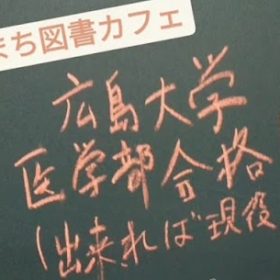 まち図書カフェ
広島大学
医学部合格
(出来れば現役